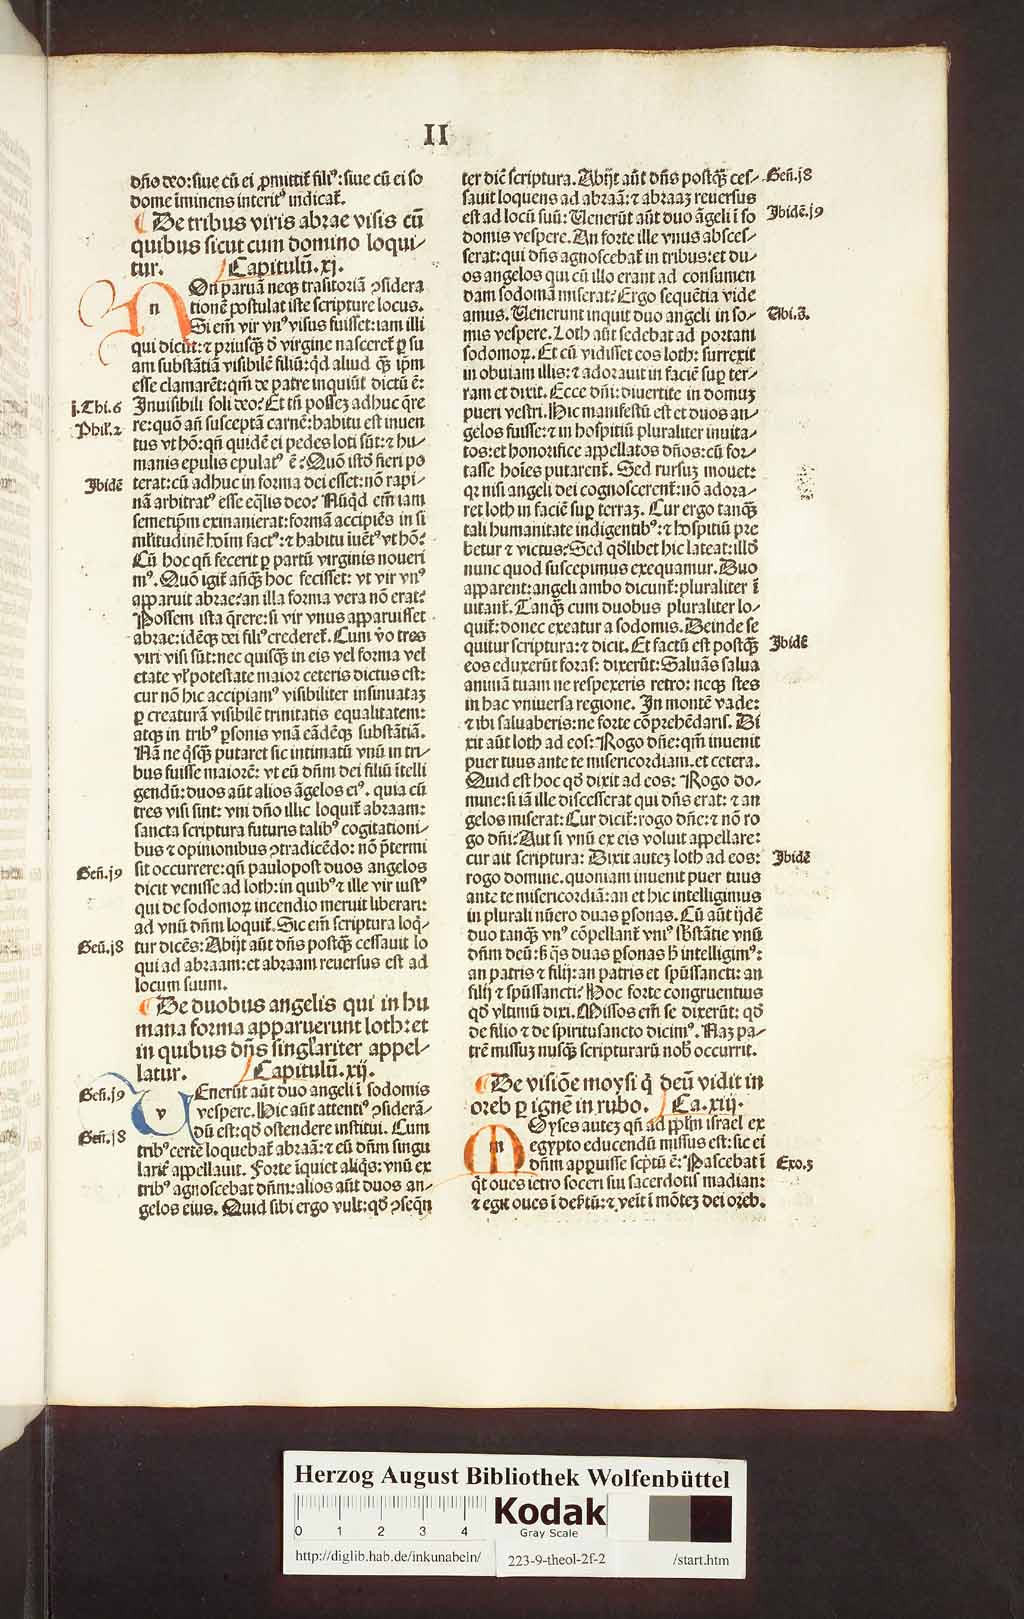 II
dño deo: siue cũ ei ꝓmittit̃ filiꝰ: siue cũ ei so
dome ĩminens interitꝰ indicat̃.
De tribus viris abrae visis cũ
quibus sicut cum domino loqui⸗
tur. Capitulũ.xj.
n On paruã neqꝫ trãsitoriã ꝯsidera
tionẽ postulat iste scripture locus.
Si em̃ vir vnꝰ visus fuisset: iam illi
qui dicũt: ⁊ priusqꝫ̃ ď virgine nasceret̃ ꝑ su
am substãtiã visibilẽ filiũ: qd̃ aliud qꝫ̃ ip̃m
esse clamarẽt: qm̃ de patre inquiũt dictũ ẽ:
j.Thi.6
Inuisibili soli deo? Et tñ possez adhuc q̃re
Phil'.2
re: quõ añ susceptã carnẽ: habitu est inuen
tus vt hõ: qñ quidẽ ei pedes loti sũt: ⁊ hu⸗
manis epulis epulatꝰ ẽ? Quõ istď fieri po
Ibidẽ
terat: cũ adhuc in forma dei esset: nõ rapi⸗
nã arbitratꝰ esse eq̃lis deo? Nũqd̃ em̃ iam
semetip̃m exinanierat: formã accipiẽs in si
militudinẽ hoĩm factꝰ: ⁊ habitu iuẽtꝰ vt hõ?
Cũ hoc qñ fecerit ꝑ partũ virginis noueri
mꝰ. Quõ igit̃ añqꝫ̃ hoc fecisset: vt vir vnꝰ
apparuit abrae? an illa forma vera nõ erat?
Possem ista q̃rere: si vir vnus apparuisset
abrae: idẽqꝫ dei filiꝰ crederet̃. Cum v̊o tres
viri visi sũt: nec quisqꝫ̃ in eis vel forma vel
etate vl' potestate maior ceteris dictus est:
cur nõ hic accipiamꝰ visibiliter insinuataz
ꝑ creaturã visibilẽ trinitatis equalitatem:
atqꝫ in tribꝰ ꝑsonis vnã eãdẽqꝫ substãtiã.
Nã ne q̃sqꝫ̃ putaret sic intimatũ vnũ in tri⸗
bus fuisse maiorẽ: vt eũ dñm dei filiũ ĩtelli
gendũ: duos aũt alios ãgelos eiꝰ. quia cũ
tres visi sint: vni dño illic loquit̃ abraam:
sancta scriptura futuris talibꝰ cogitationi⸗
bus ⁊ opinionibus ꝯtradicẽdo: nõ p̃termi
Geñ.j9
sit occurrere: qñ paulopost duos angelos
dicit venisse ad loth: in quibꝰ ⁊ ille vir iustꝰ
qui de sodomoꝝ incendio meruit liberari:
ad vnũ dñm loquit̃. Sic em̃ scriptura loq̃⸗
Geñ.j8
tur dicẽs: Abijt aũt dñs postqꝫ̃ cessauit lo
qui ad abraam: et abraam reuersus est ad
locum suum.
De duobus angelis qui in hu
mana forma apparuerunt loth: et
in quibus dñs singl'ariter appel⸗
latur. Capitulũ.xij.
Geñ.j9
v Enerũt aũt duo angeli ĩ sodomis
vespere. Hic aũt attentiꝰ ꝯsiderã⸗
Geñ.j8
dũ est: qď ostendere institui. Cum
tribꝰ certe loquebat̃ abraã: ⁊ eũ dñm singu
larit̃ appellauit. Forte ĩquiet aliq̃s: vnũ ex
tribꝰ agnoscebat dñm: alios aũt duos an⸗
gelos eius. Quid sibi ergo vult: qď ꝯseq̃ñ
ter diẽ scriptura. Abijt aũt dñs postqꝫ̃ ces⸗
Geñ.j8
sauit loquens ad abraã: ⁊ abraaz reuersus
est ad locũ suũ: Uenerũt aũt duo ãgeli ĩ so
Ibidẽ.j9
domis vespere. An forte ille vnus absces⸗
serat: qui dñs agnoscebat̃ in tribus: et du⸗
os angelos qui cũ illo erant ad consumen
dam sodomã miserat? Ergo sequẽtia vide
amus. Uenerunt inquit duo angeli in so⸗
Ubi.š.
mis vespere. Loth aũt sedebat ad portam
sodomoꝝ. Et cũ vidisset eos loth: surrexit
in obuiam illis: ⁊ adorauit in faciẽ suꝑ ter⸗
ram et dixit. Ecce dñi: diuertite in domuz
pueri vestri. Hic manifestũ est et duos an⸗
gelos fuisse: ⁊ in hospitiũ pluraliter inuita⸗
tos: et honorifice appellatos dños: cũ for⸗
tasse hoĩes putarent̃. Sed rursuz mouet:
qꝛ nisi angeli dei cognoscerent̃: nõ adora⸗
ret loth in faciẽ suꝑ terraz. Cur ergo tanqꝫ̃
tali humanitate indigentibꝰ: ⁊ hospitiũ pre
betur ⁊ victus? Sed qďlibet hic lateat: illď
nunc quod suscepimus exequamur. Duo
apparent: angeli ambo dicunt̃: pluraliter ĩ
uitant̃. Tanqꝫ̃ cum duobus pluraliter lo⸗
quit̃: donec exeatur a sodomis. Deinde se
quitur scriptura: ⁊ dicit. Et factũ est postqꝫ̃
Ibidẽ
eos eduxerũt foras: dixerũt: Saluãs salua
animã tuam ne respexeris retro: neqꝫ stes
in hac vniuersa regione. In montẽ vade:
⁊ ibi saluaberis: ne forte cõprehẽdaris. Di
xit aũt loth ad eos: Rogo dñe: qm̃ inuenit
puer tuus ante te misericordiam. et cetera.
Quid est hoc qď dixit ad eos: Rogo do⸗
mine: si iã ille discesserat qui dñs erat: ⁊ an
gelos miserat: Cur dicit̃: rogo dñe: ⁊ nõ ro
go dñi? Aut si vnũ ex eis voluit appellare:
cur ait scriptura: Dixit autez loth ad eos:
Ibidẽ
rogo domine. quoniam inuenit puer tuus
ante te misericordiã: an et hic intelligimus
in plurali nũero duas ꝑsonas. Cũ aũt ijdẽ
duo tanqꝫ̃ vnꝰ cõpellant̃ vniꝰ sb̃stãtie vnũ
dñm deũ: ß q̃s duas ꝑsonas h̃ intelligimꝰ:
an patris ⁊ filij: an patris et sp̃ussancti: an
filij ⁊ sp̃ussancti? Hoc forte congruentius
qď vltimũ dixi. Missos em̃ se dixerũt: qď
de filio ⁊ de spiritusancto dicimꝰ. Naz pa⸗
trẽ missuz nusqꝫ̃ scripturarũ nob̃ occurrit.
De visiõe moysi q̃ deũ vidit in
oreb ꝑ ignẽ in rubo. Ca.xiij.
m Oyses autez qñ ad pp̃lm israel ex
egypto educendũ missus est: sic ei
dñm appuisse scp̃tũ ẽ: Pascebat ĩ
Exo.3
q̃t oues ietro soceri sui sacerdotis madian:
⁊ egit oues ĩ desertũ: ⁊ veĩt ĩ mõtez dei oreb.
Herzog August Bibliothek Wolfenbüttel
0 1 2 3 4
Kodak
Gray Scale
http://diglib.hab.de/inkunabeln/ 223-9-theol-2f-2 /start.htm